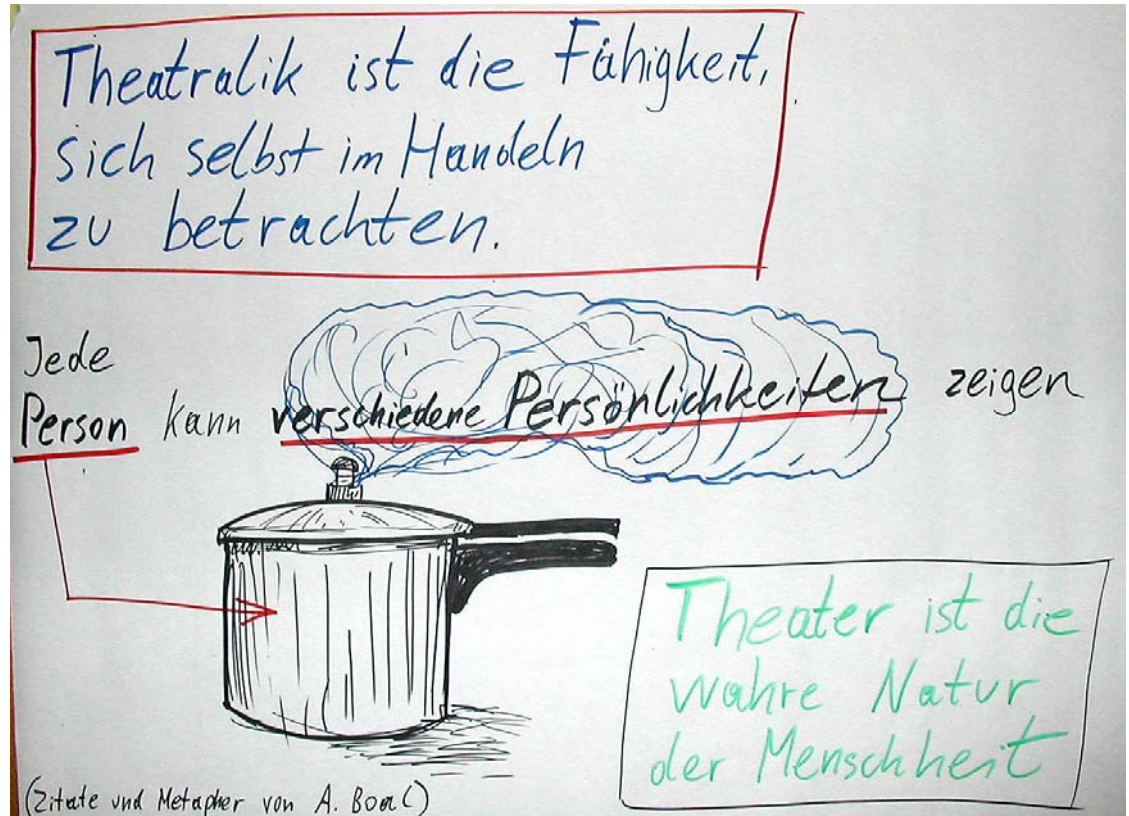 Theatralik ist die Fähigkeit,
sich selbst im Handeln
zu betrachten.
Jede
Person kann verschiedene Persönlichkeiten zeigen
Theater ist die
wahre Natur
der Menschheit
(Zitate und Metapher von A. Boal)